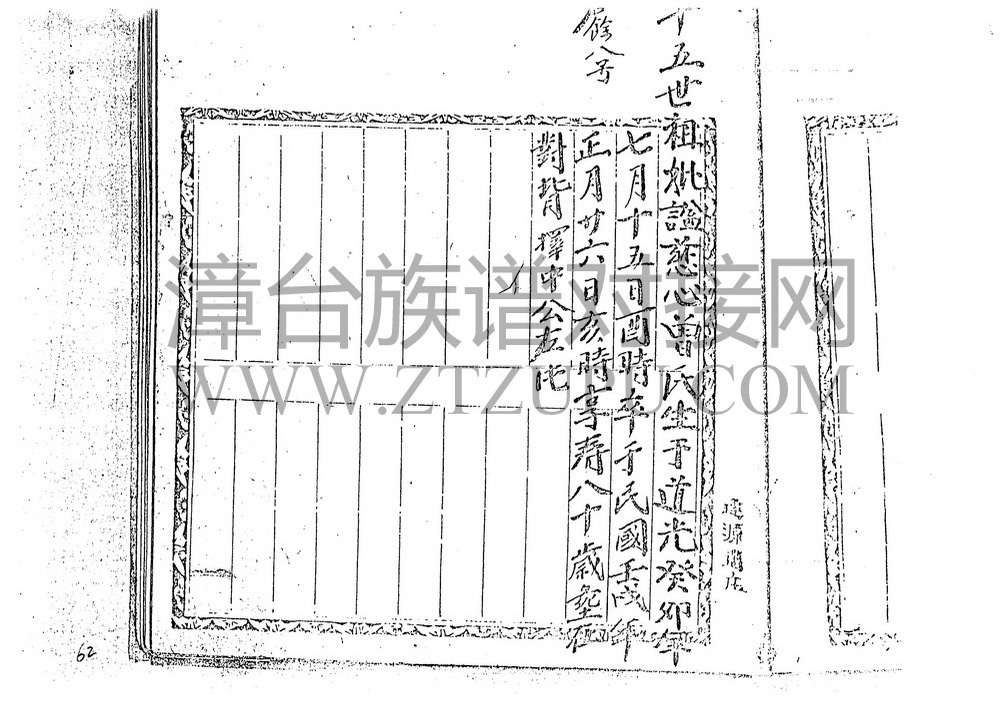 十五世祖妣諡慈心曾氏生于道光癸卯年
七月十五日酉時卒于民國壬戌年
正月廿六日亥時享寿八十歲坔在
對背擇中公左片
餘八号
漳台族谱对接网
WWW.ZTZUPU.COM
62